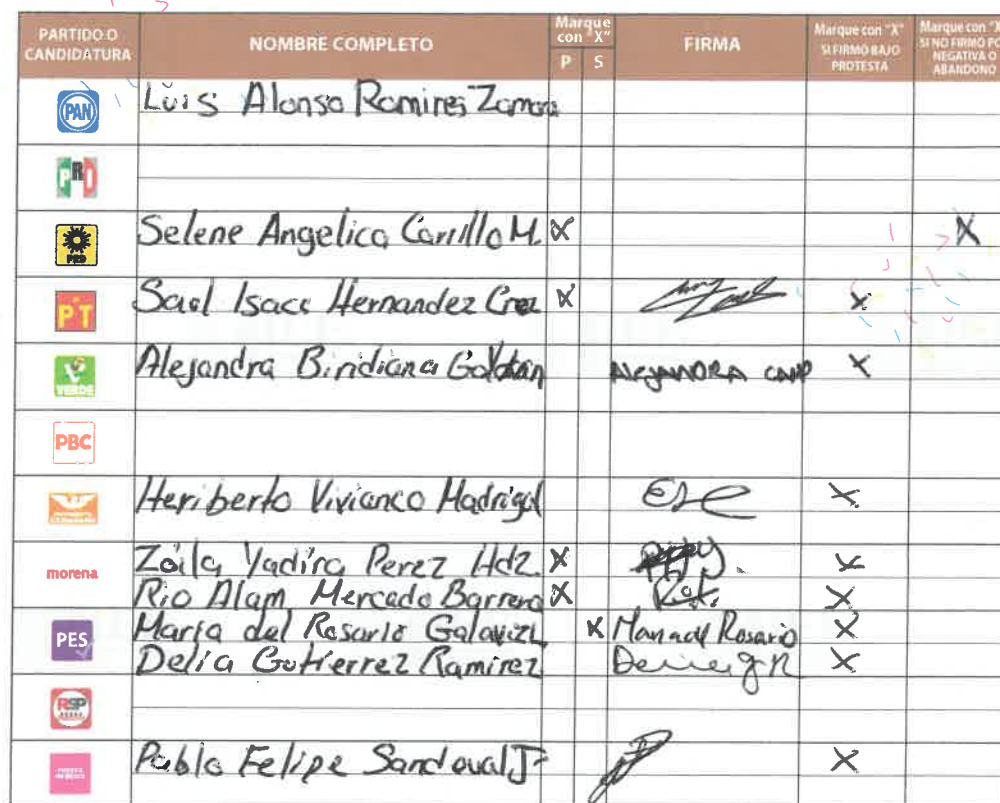 PARTIDO O CANDIDATURA NOMBRE COMPLETO Marque con "X" P S FIRMA Marque con "X" SI FIRMÓ BAJO PROTESTA Marque con "X" SI NO FIRMÓ POR NEGATIVA O ABANDONO
PAN Luis Alonso Ramires Zamora
PRI
PRD Selene Angelica Carrillo M. X X
PT Saul Isacc Hernandez Cruz X X
VERDE Alejandra Biridiana Galván ALEJANDRA X
PBC
Heriberto Vivianco Madrigal X
morena Zoila Yadira Perez Hdz. X X
Rio Alam Mercado Barrera X X
PES Maria del Rosario Galaviz X Maria del Rosario X
Delia Gutierrez Ramirez X
RSP
Pablo Felipe Sandoval J X